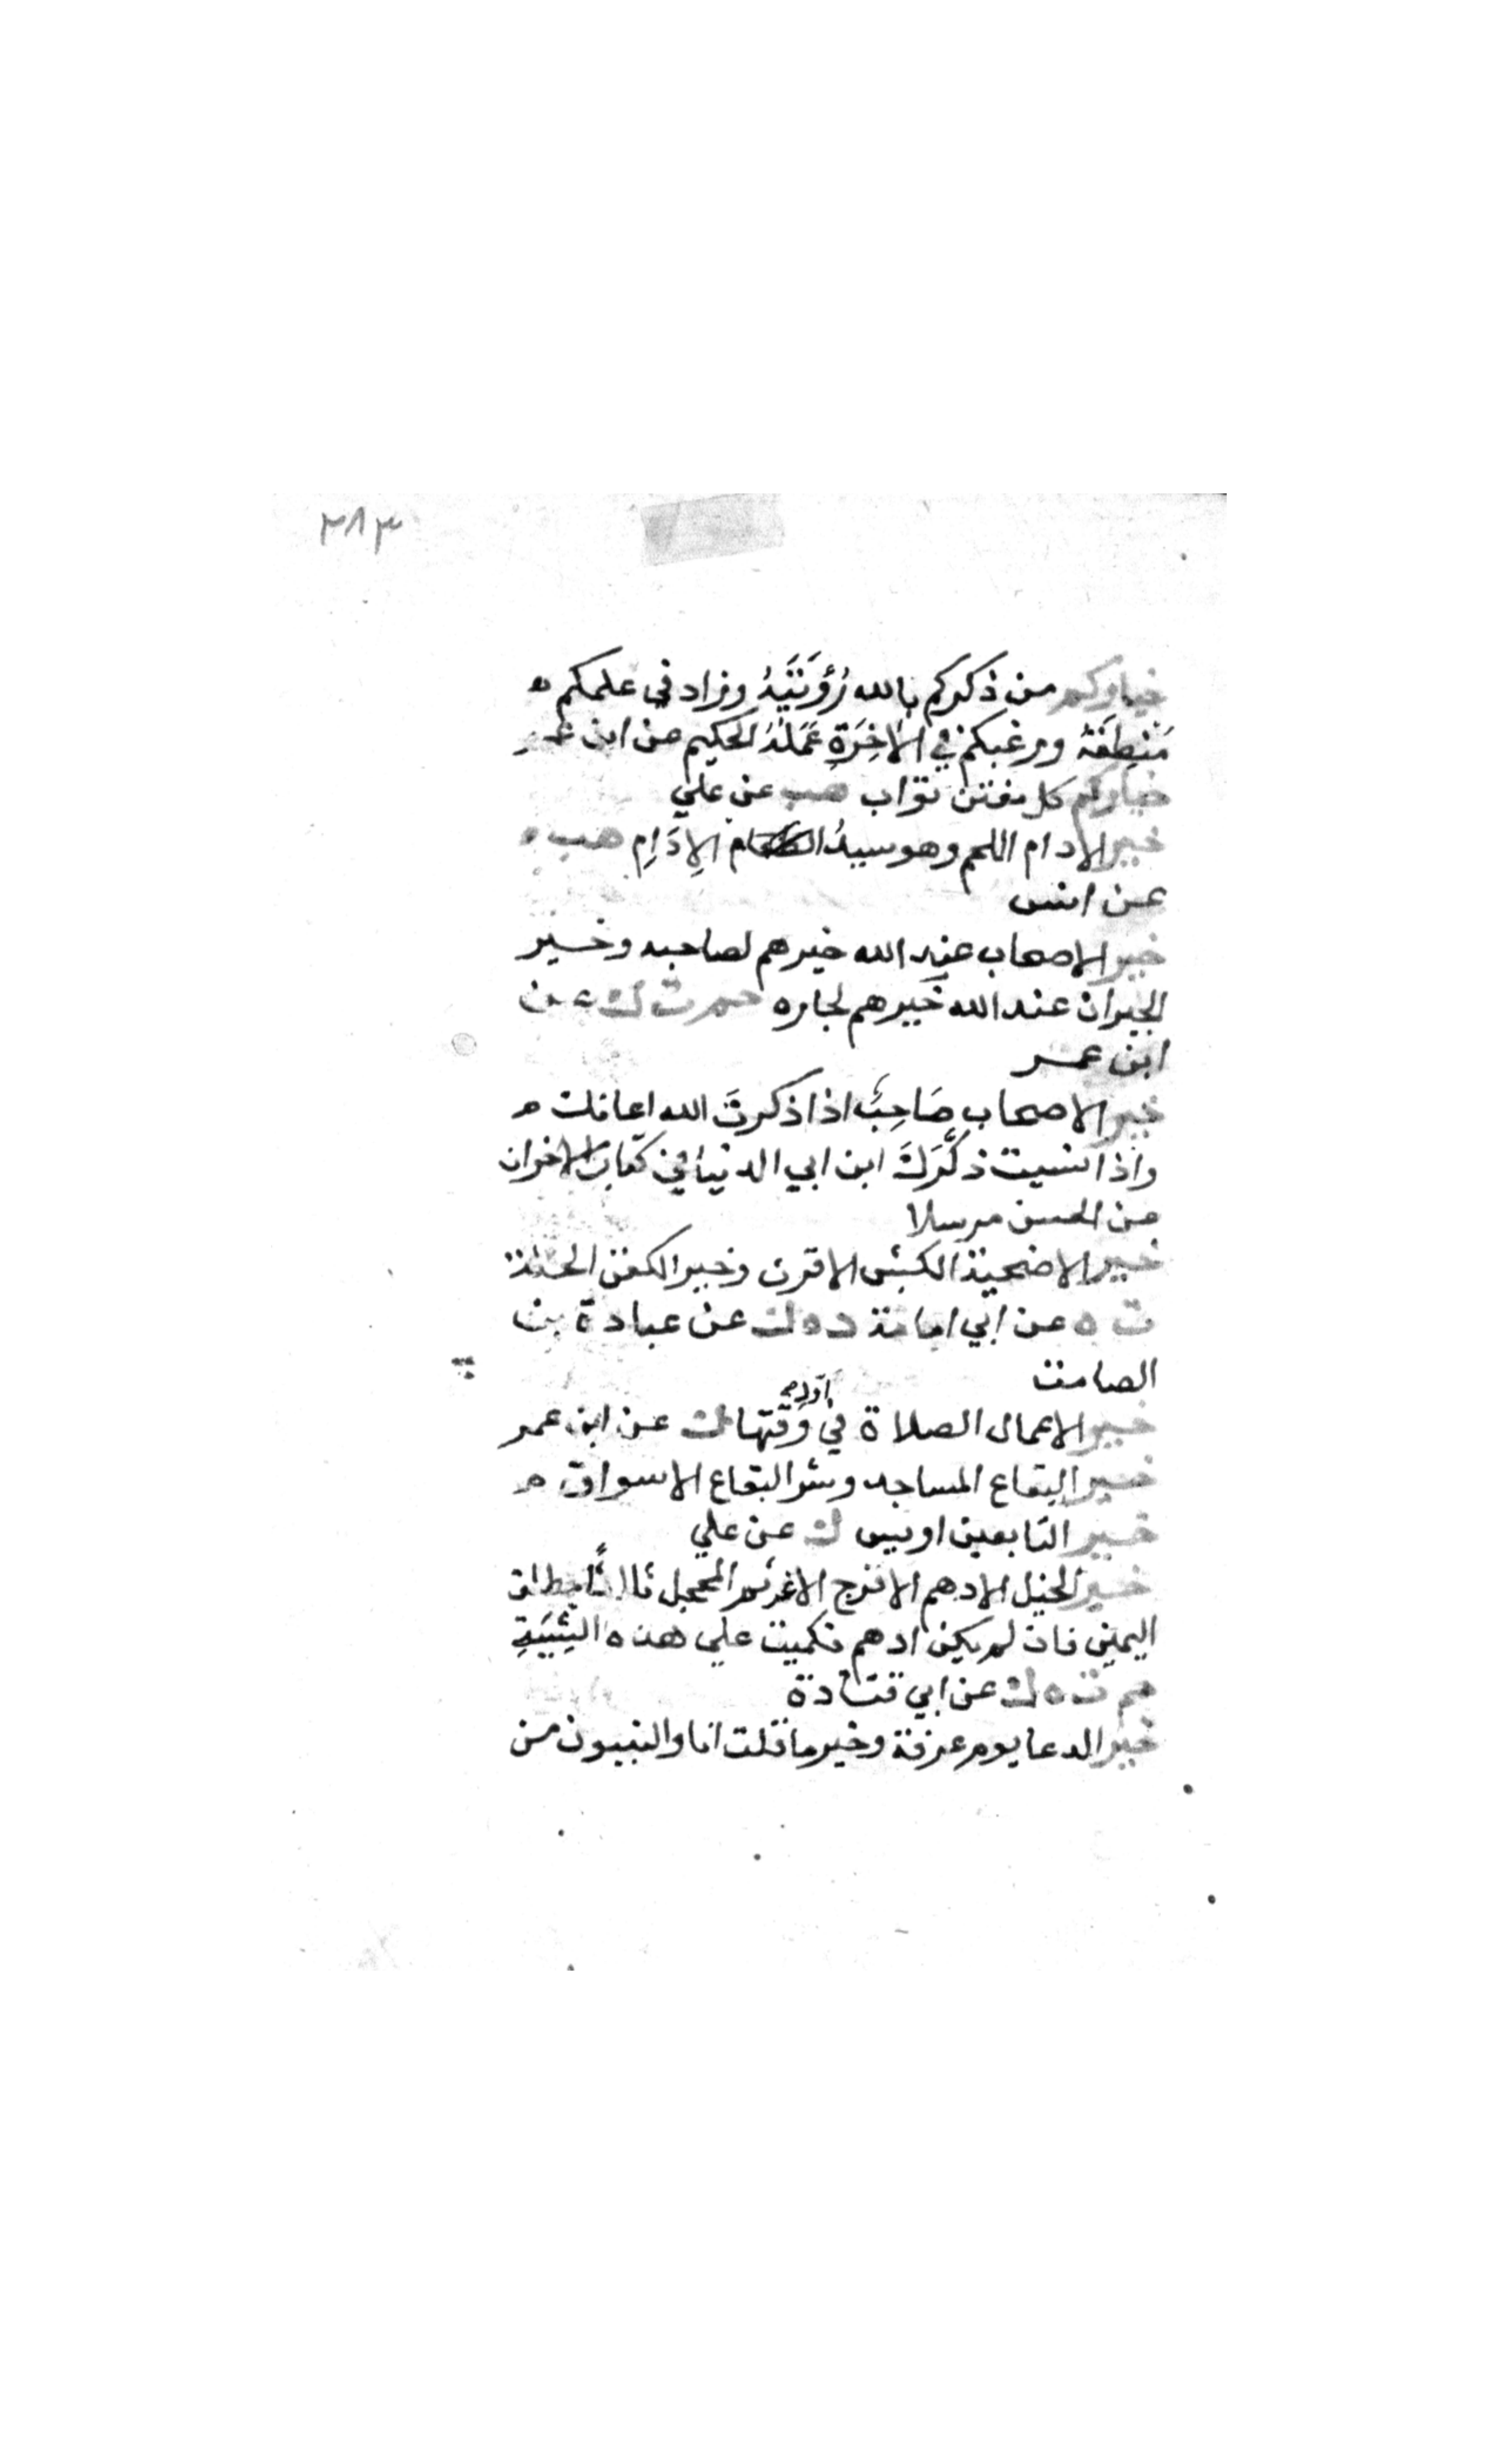 ٣٨٣
خياركم من ذكركم بالله رُؤيَتَهُ وزاد في علمكم ه
مَنْطِقَهُ ورغبكم في الاٰخِرَةِ عَمَلُهُ الحكيم عن ابن عمر
خياركم كل مفتن تواب هب عن علي
خير الادام اللحم وهو سيدُ الطعام الاِدَامِ هب
عن انس
خير الاصحاب عند الله خيرهم لصاحبه وخير
الجيران عند الله خَيرهم لجاره حم ت ك عن
ابن عمر
خير الاصحاب صَاحِبٌ اذا ذكرتَ الله اعانك ه
واذا نسيت ذكَّرَكَ ابن ابي الدنيا في كتاب الاخوان
عن الحسن مرسلا
خير الاضحية الكبش الاقرن وخير الكفن الحلة
ت ه عن ابي امامة د ه ك عن عبادة بن
الصامت
خير الاعمال الصلاة في اول وَقتها ك عن ابن عمر
خير البقاع المساجد وشر البقاع الاسواق ه
خير التابعين اويس ك عن علي
خير الخيل الادهم الاقرح الارثم المحجل ثلاثًا مطلق
اليمين فان لم يكن ادهم فكميت علي هذه الشِيَةِ
حم ت ه ك عن ابي قتادة
خير الدعا يوم عرفة وخير ما قلت انا والنبيون من